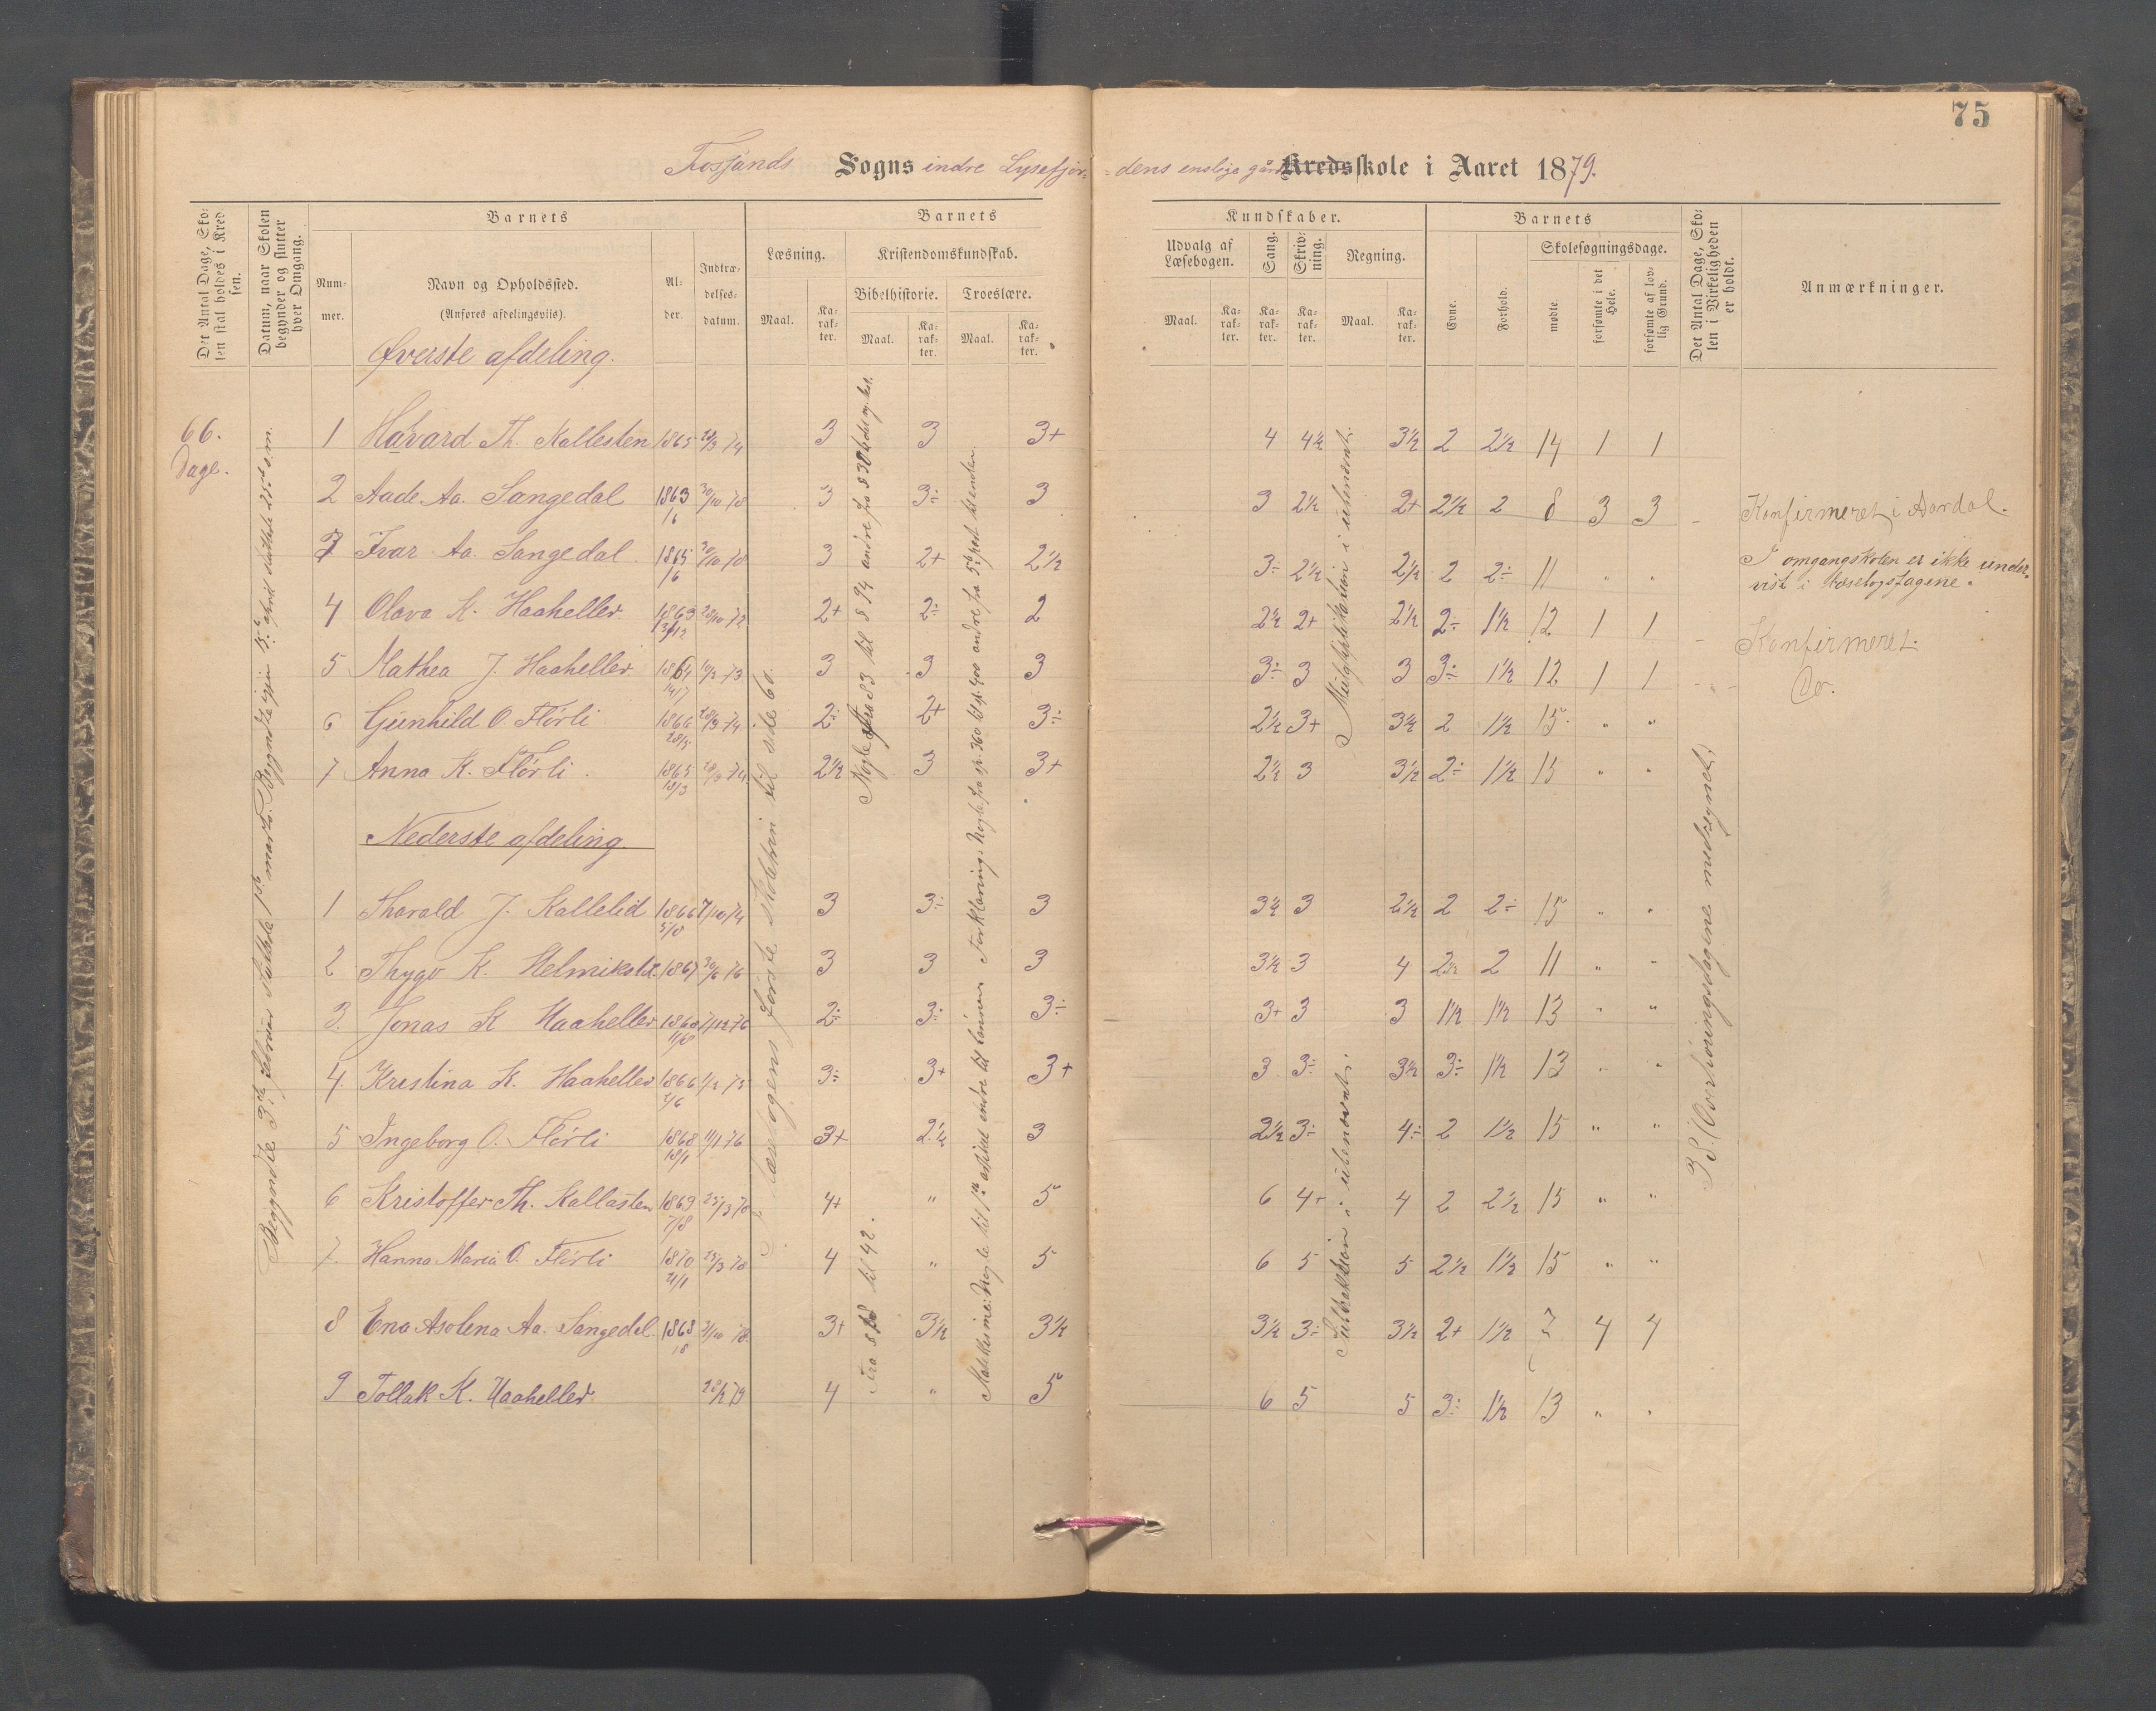 75
Fossands Sogns indre Lysefjor-
dens enslige går Kredsskole i Aaret 1879.
Det Antal Dage, Skolen skal holdes i Kredsen.
Datum, naar Skolen begynder og slutter hver Omgang.
Barnets
Nummer.
Navn og Opholdssted.
(Anføres afdelingsviis).
Alder.
Indtrædelsesdatum.
Barnets
Læsning.
Maal.
Karakter.
Kristendomskundskab.
Bibelhistorie.
Maal.
Karakter.
Troeslære.
Maal.
Karakter.
Kundskaber.
Udvalg af Læsebogen.
Maal.
Karakter.
Sang.
Karakter.
Skrivning.
Karakter.
Regning.
Maal.
Karakter.
Barnets
Evne.
Forhold.
Skolesøgningsdage.
mødte
forsømte i det Hele.
forsømte af lovlig Grund.
Det Antal Dage, Skolen i Virkeligheden er holdt.
Anmærkninger.
Øverste afdeling.
66. Dage.
1 Håvard Th. Kallesten 1865 28/3 74 3 3 3+ 4 4½ 3½ 2 2½ 14 1 1
2 Aade Aa. Sangedal 1863 /6 30/10 78 3 3÷ 3 3 2½ 2+ 2½ 2 8 3 3 Konfirmeret i Aardal.
3 Ivar Aa. Sangedal 1865 /6 30/10 78 3 2+ 2½ 3÷ 2½ 2½ 2 2÷ 11 " " I omgangskolen er ikke under-
vist i læsebogstagene.
4 Olava K. Haaheller 1863 13/12 28/10 72 2+ 2÷ 2 2½ 2+ 2½ 2÷ 1½ 12 1 1 Konfirmeret.
5 Mathea J. Haaheller 1864 14/7 10/2 73 3 3 3 3÷ 3 3 3÷ 1½ 12 1 1 Do.
6 Gunhild O. Flörli 1866 28/5 28/3 74 2÷ 2+ 3÷ 2½ 3+ 3½ 2 1½ 15 " "
7 Anna K. Flörli 1865 18/3 28/3 74 2½ 3 3+ 2½ 3 3½ 2÷ 1½ 15 " "
Nederste afdeling
1 Tharald J. Kallelid 1866 5/8 7/10 74 3 3÷ 3 3½ 3 2½ 2 2÷ 15 " "
2 Thygo K. Helmikstøl 1867 30/6 76 3 3 3 3½ 3 4 2½ 2 11 " "
3. Jonas K Haaheller 1868 11/8 1/12 76 2÷ 3÷ 3÷ 3+ 3 3 1½ 1½ 13 " "
4 Kristina K. Haaheller 1866 2/6 1/2 75 3÷ 3+ 3+ 3 3÷ 3½ 3÷ 1½ 13 " "
5 Ingeborg O. Flörli 1868 18/1 11/1 76 3+ 2½ 3 2½ 3÷ 4÷ 2 1½ 15 " "
6 Kristoffer Th. Kallasten 1869 7/8 25/3 78 4+ " 5 6 4+ 4 2 2½ 15 " "
7. Hanna Maria O. Flörli 1870 21/1 25/3 78 4 " 5 6 5 5 2½ 1½ 15 " "
8 Ena Asolena Aa. Sangedal 1868 31/10 78 3+ 3½ 3½ 3½ 3÷ 3½ 2+ 1½ 7 4 4
9 Tollak K. Haaheller 28/2 79 4 " 5 6 5 5 3÷ 1½ 13 " "
Begyndte 3die februar Sluttede 1ste marts. Begyndte igjen 15de april sluttede 25de s.m.
læsebogens første skoletrin til side 60.
Nogle fra 83 til § 94 andre fra
Fra § til 42.
Forklaring: Nogle fra sp. 360 til sp. 400 andre fra 5te part til enden
Nogle til 1ste artikel andre til bønnen
Multiplikation i ubenævnt.
Subtraktion i ubenævnt.
38 (Overhøringsdagene medregnet)